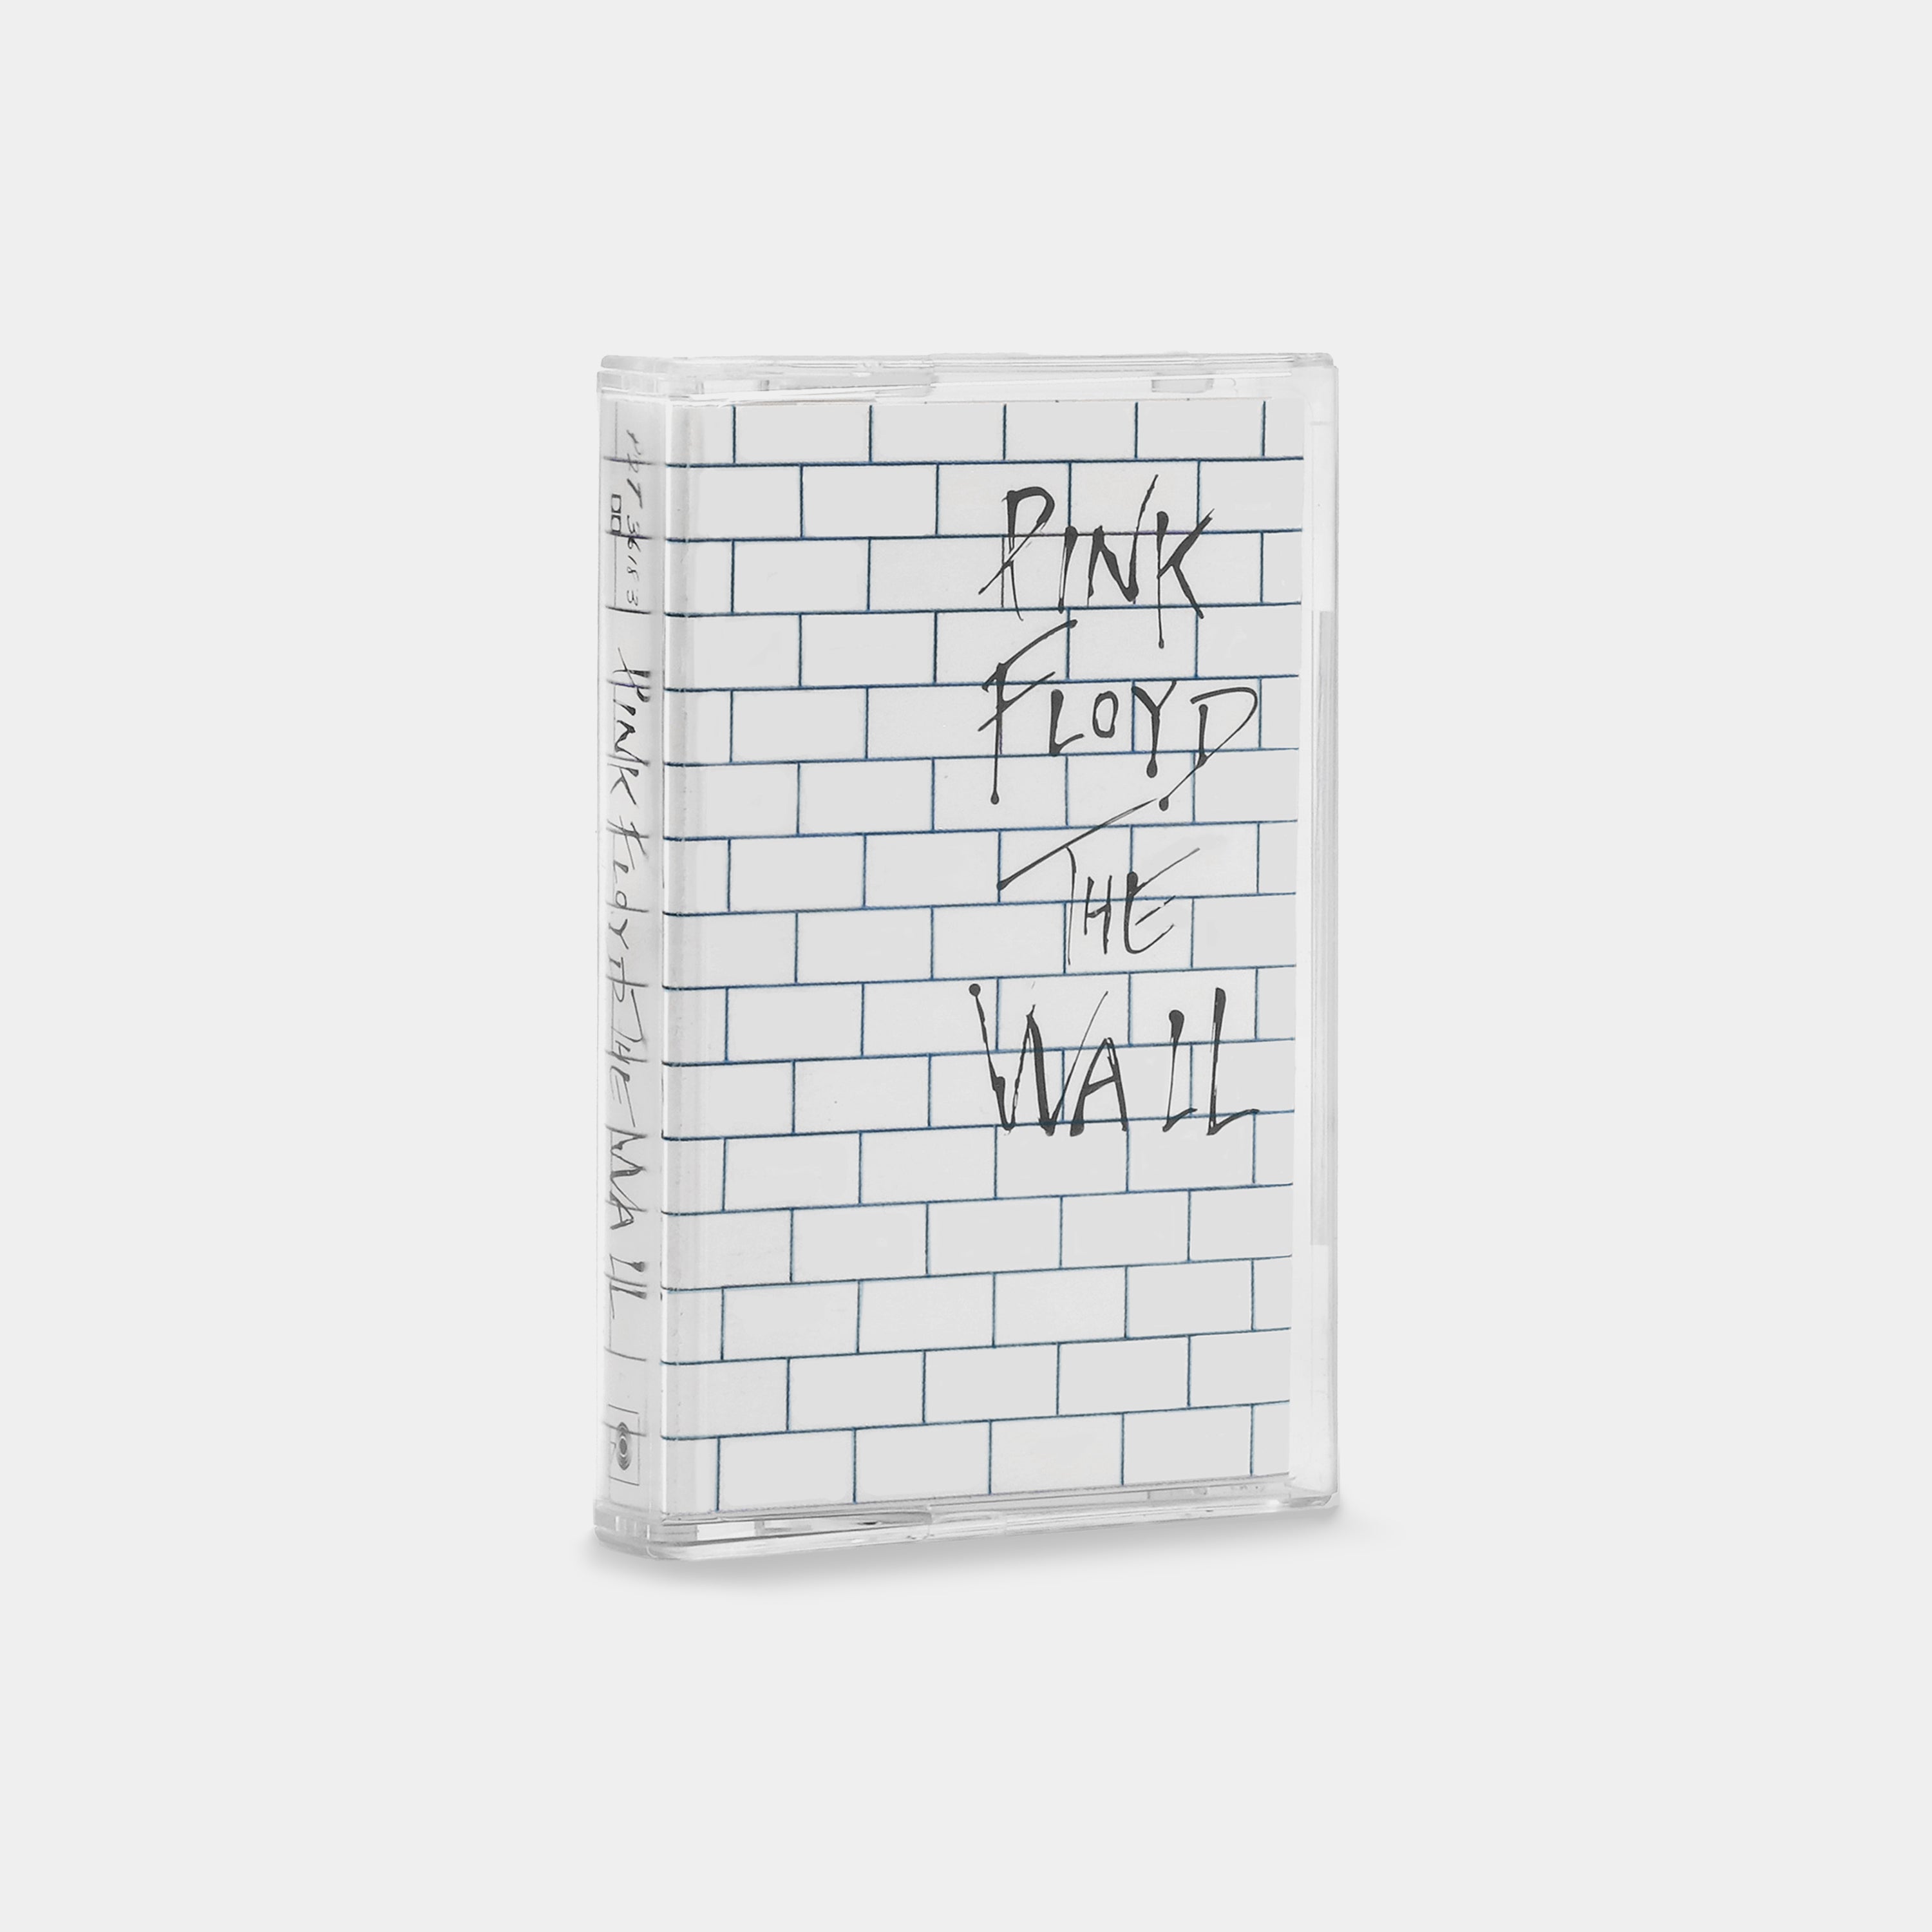 PINK
FLOYD
THE
WALL
PINK FLOYD THE WALL